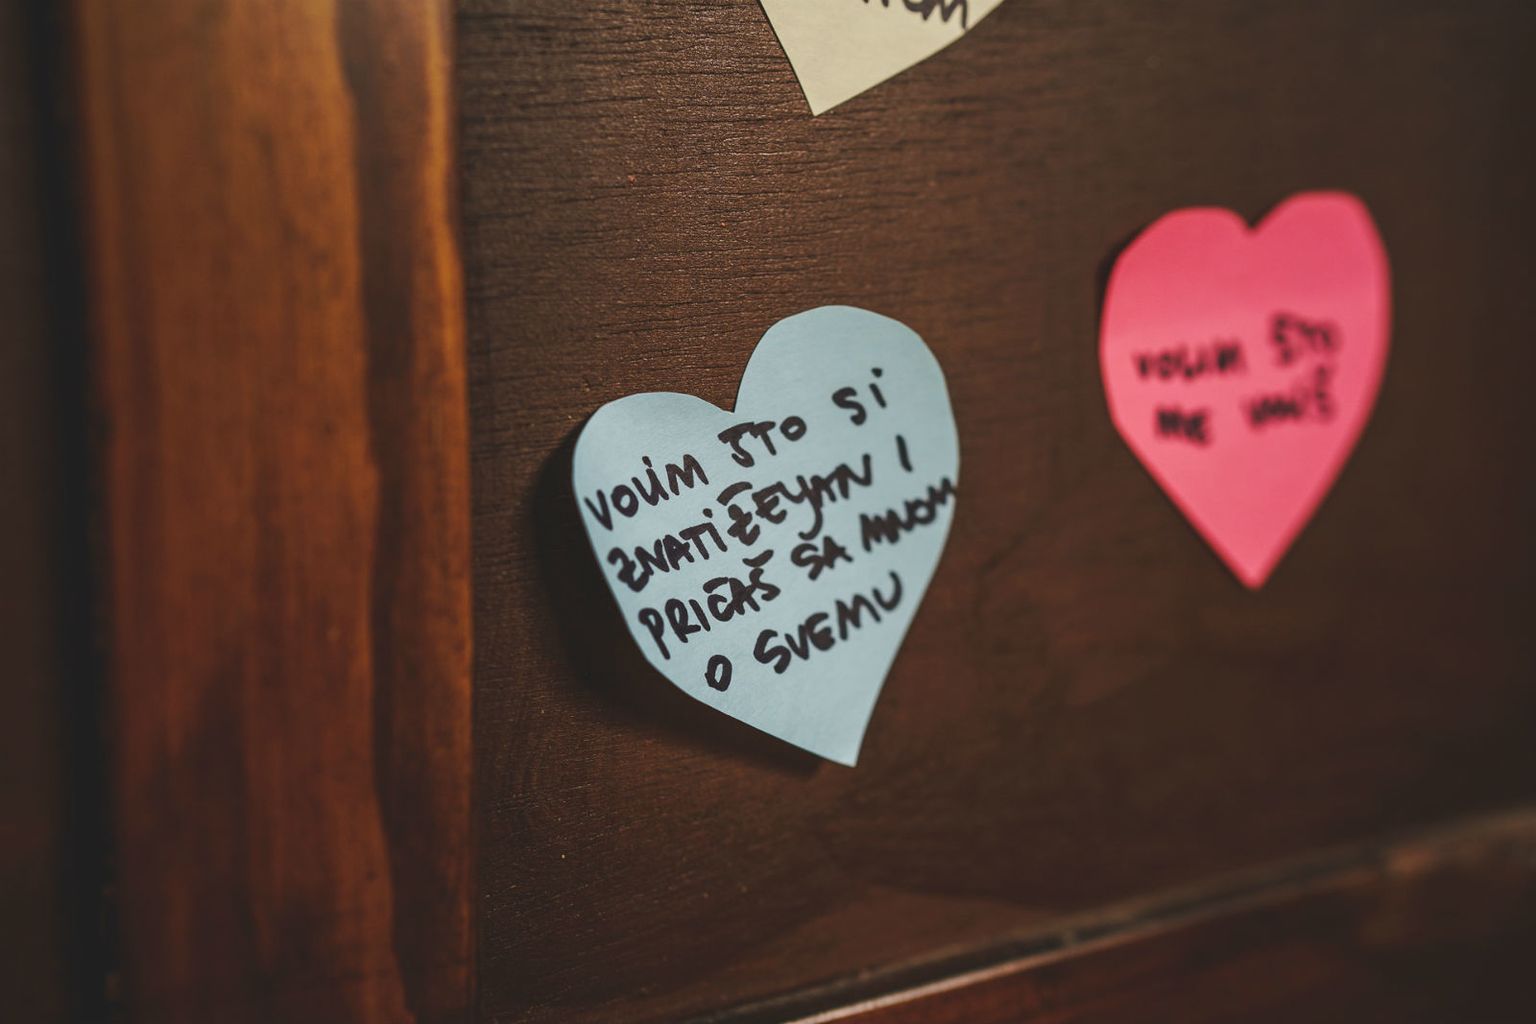 VOLIM ŠTO SI
ZNATIŽEYAN I
PRIČAŠ SA MNOM
O SVEMU
VOLIM ŠTO
ME